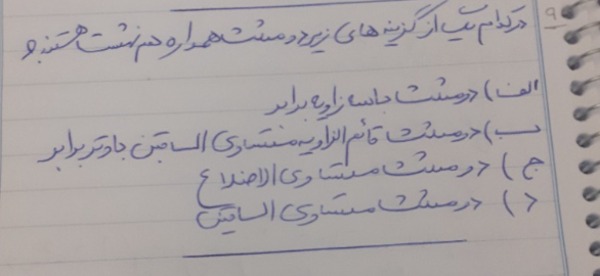 ۹- در کدام یک از گزینه های زیر دو مثلث همواره هم نهشت هستند؟
الف) دو مثلث با سه زاویه برابر
ب) دو مثلث قائم الزاویه متساوی الساقین با وتر برابر
ج) دو مثلث متساوی الاضلاع
د) دو مثلث متساوی الساقین